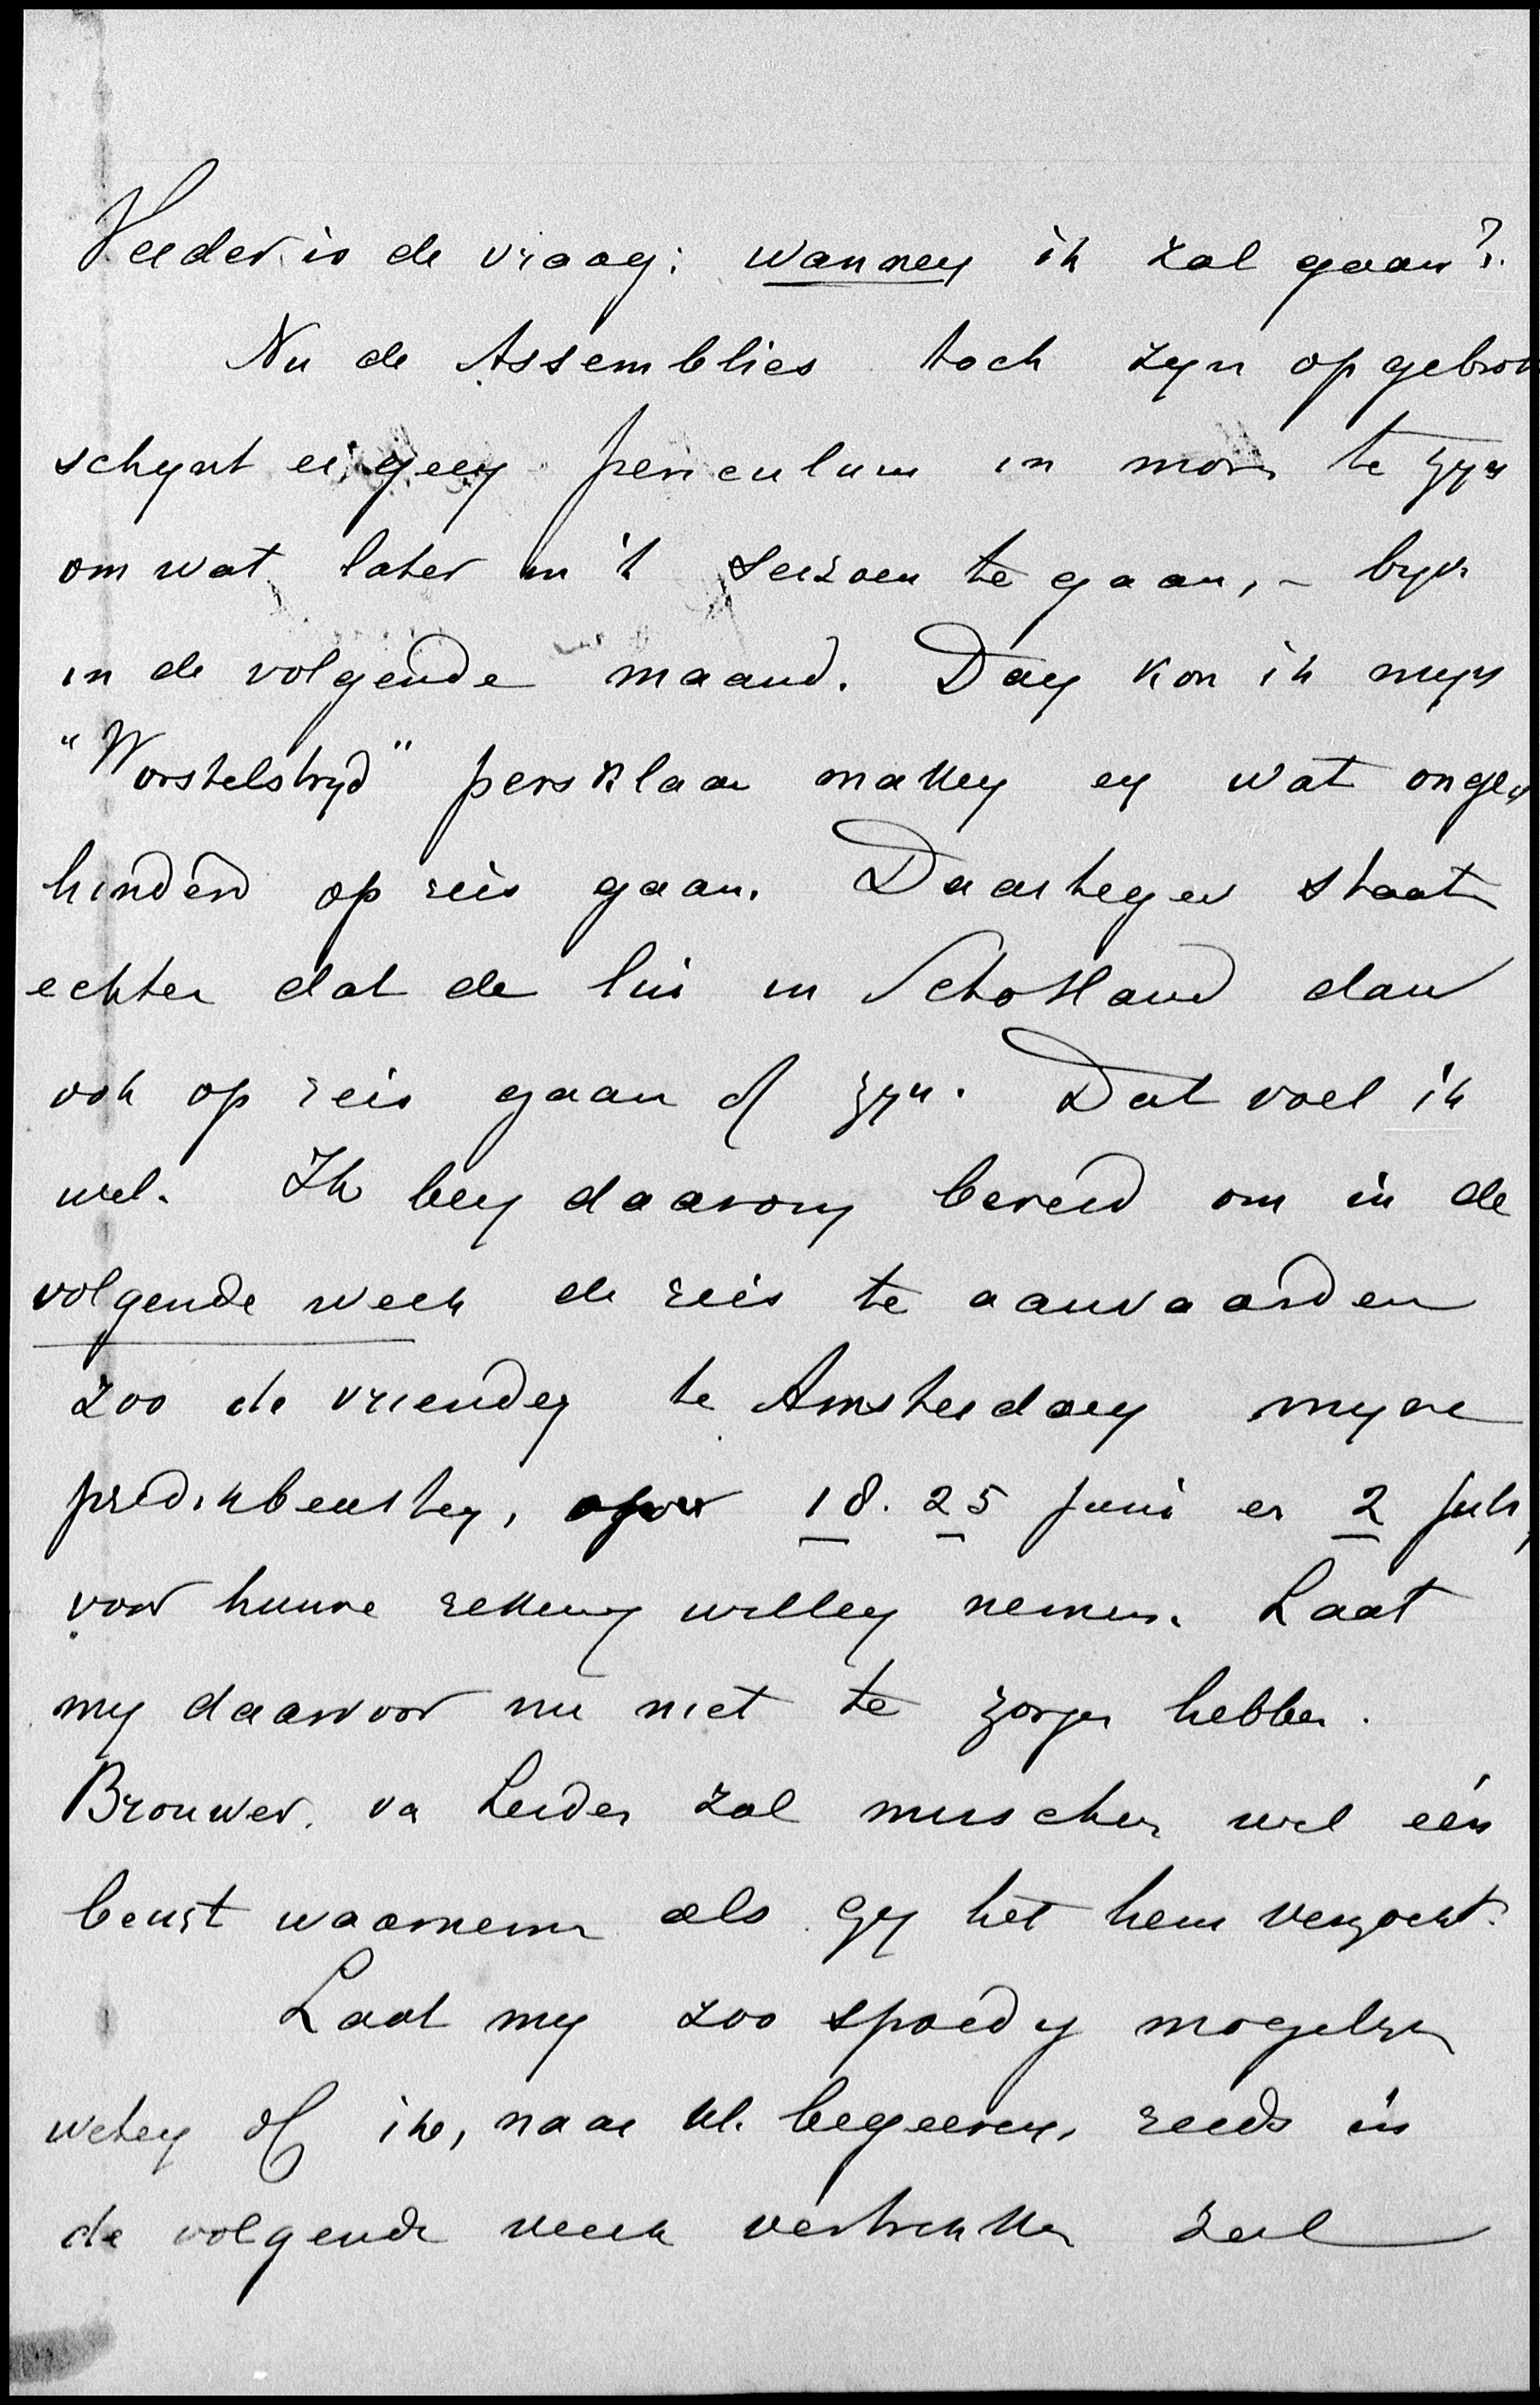 Verder is de vraag: wanneer ik zal gaan?
Nu de Assemblies toch zyn opgebro
schynt er geen periculum in mora te zyn
om wat later in 't seizoen te gaan, – byv.
in de volgende maand. Dan kon ik myn
"Worstelstryd" persklaar maken en wat onge
hinderd op reis gaan. Daartegen staat
echter dat de lui in Schotland dan
ook op reis gaan of zyn. Dat voel ik
wel. Ik ben daarom bereid om in de
volgende week de reis te aanvaarden
zoo de vrienden te Amsterdam myne
predikbeurten, 18. 25 Juni en 2 Juli,
voor hunne rekening willen nemen. Laat
my daarvoor nu niet te zorgen hebben.
Brouwer va Leiden zal misschien wel één
beurt waarnemen als gy het hem verzocht.
Laat my zoo spoedig mogelyk
weten of ik, naar Ul. begeeren, reeds in
de volgende week vertrekken zal